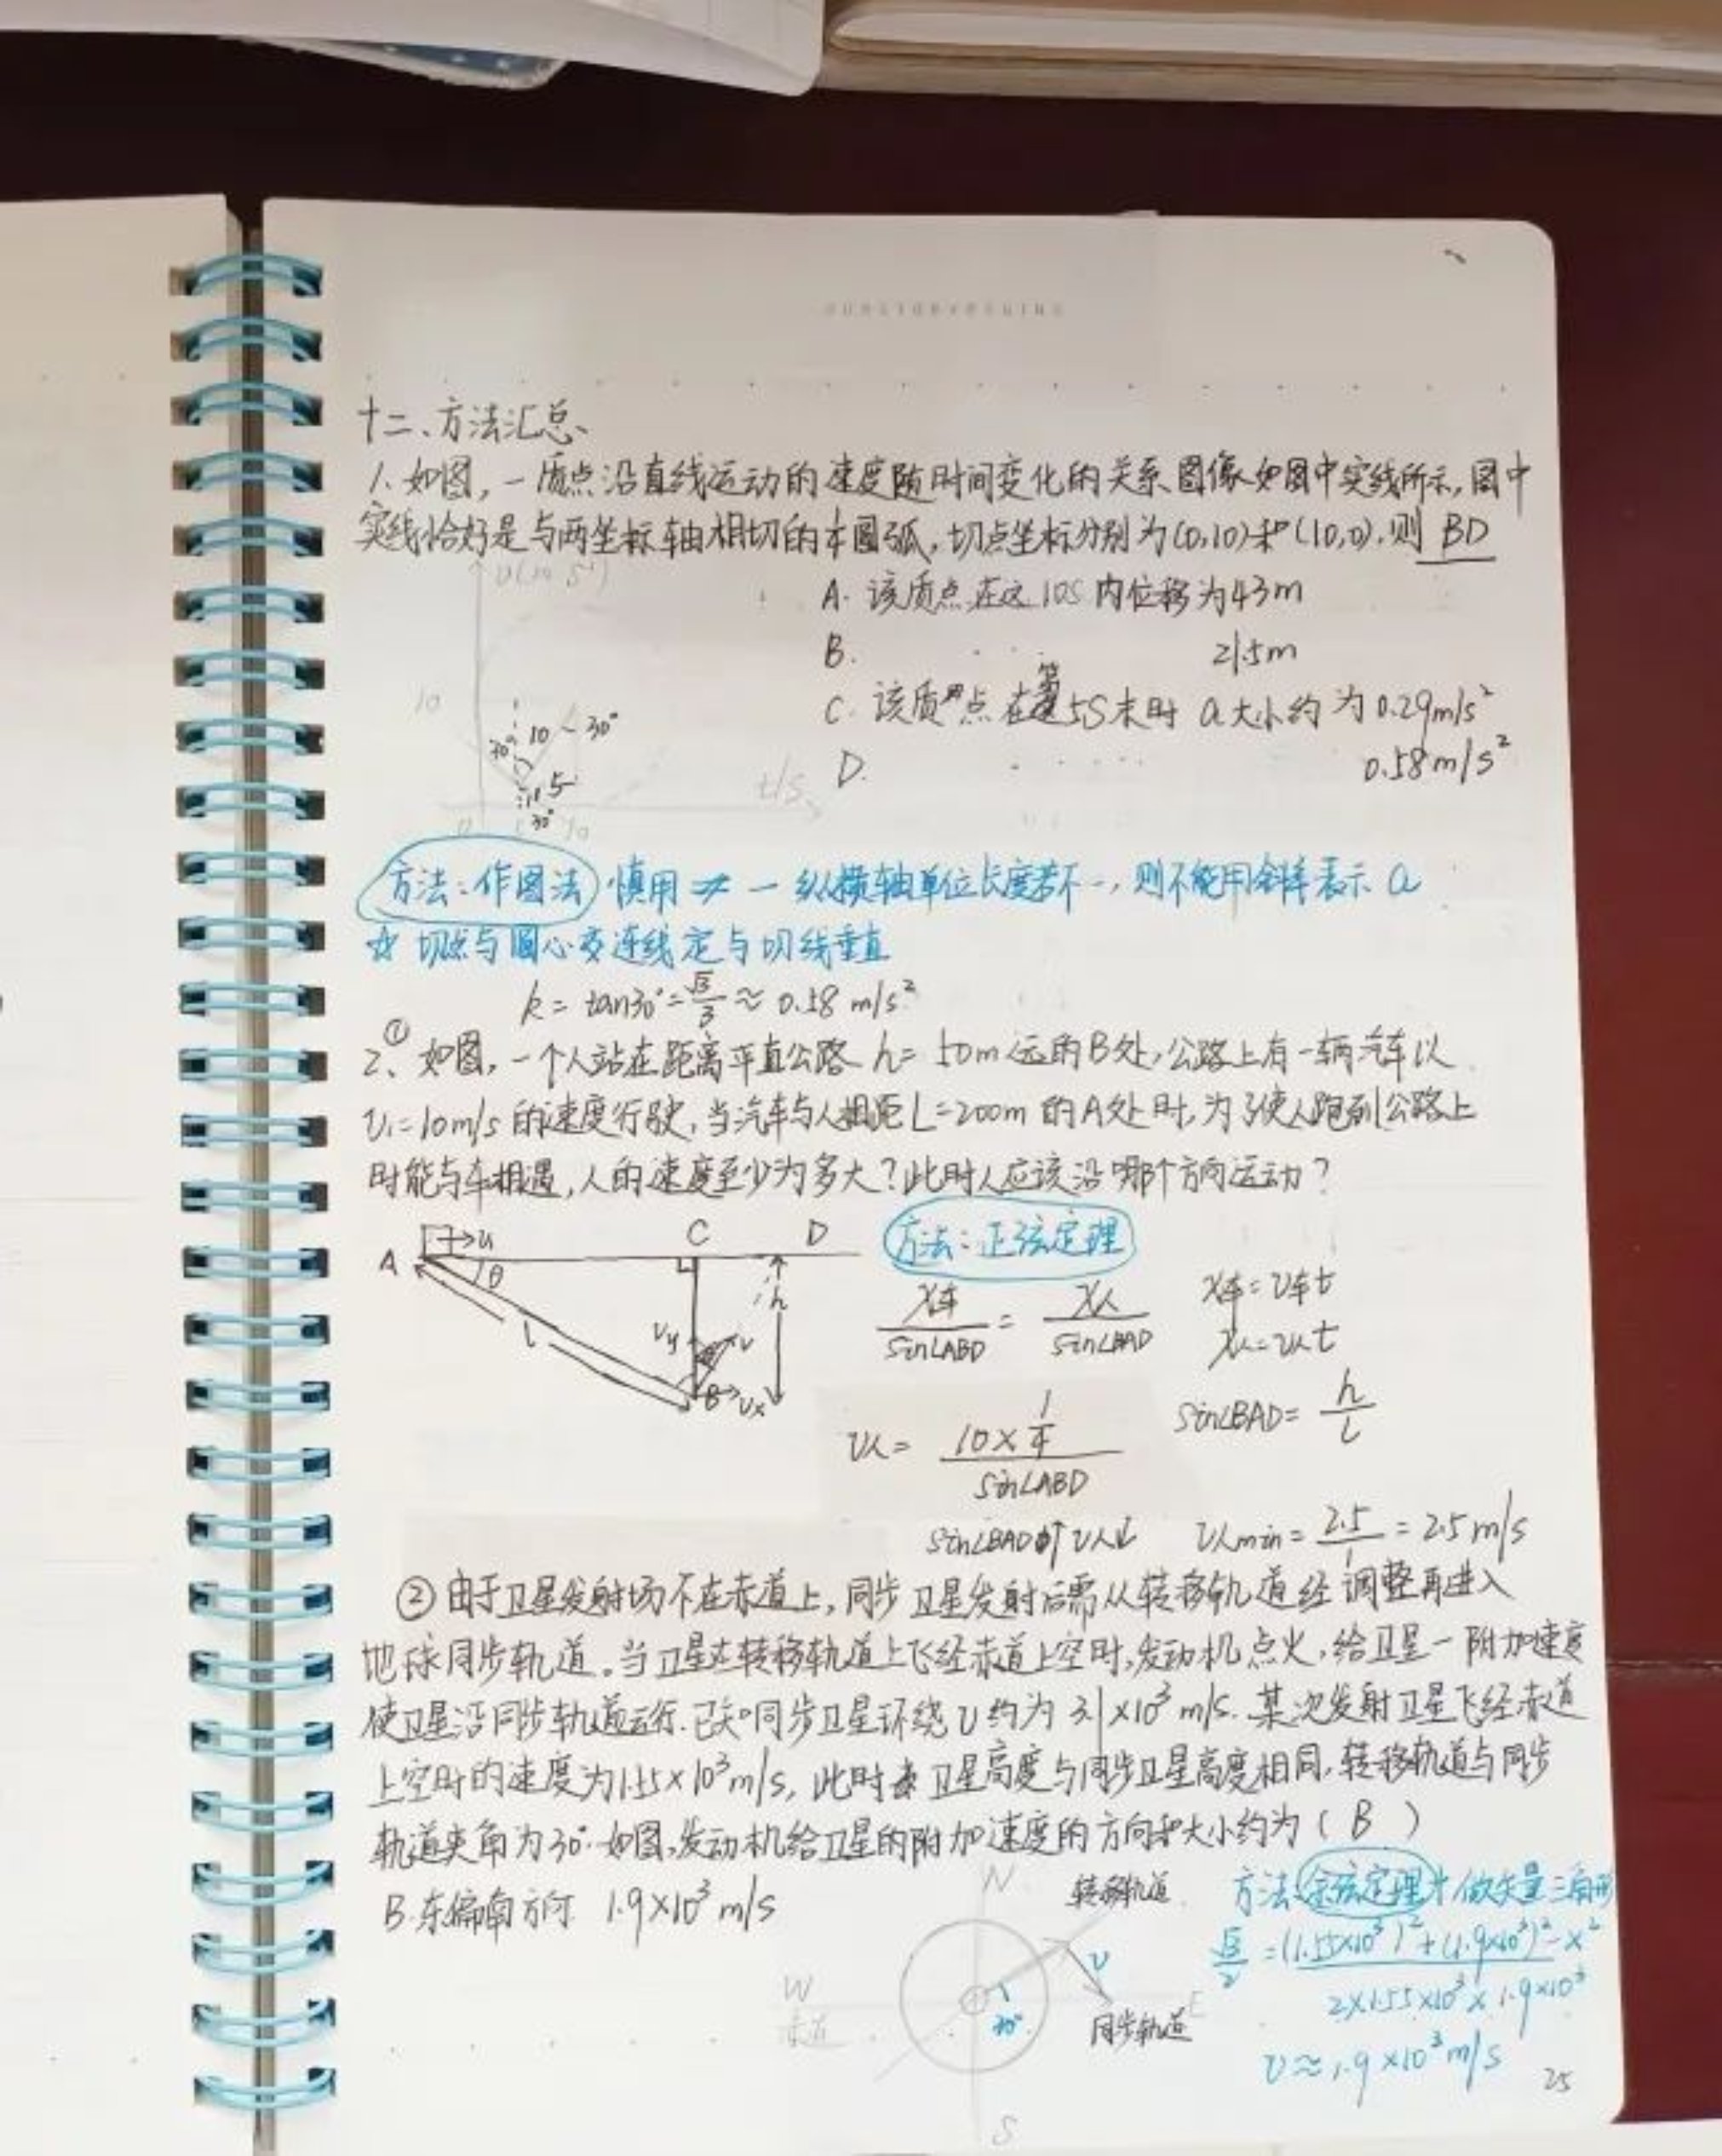 十二、方法汇总、
1. 如图, 一质点沿直线运动的速度随时间变化的关系图像如图中实线所示, 图中
实线恰好是与两坐标轴相切的圆弧, 切点坐标分别为(0,10)和(10,0), 则 BD
A. 该质点在这10S内位移为43m
B. 21.5m
C. 该质点在第5S末时 a大小约为0.29m/s²
D. 0.58m/s²
10
10 30°
30°
5
30°
t/s
0 10
方法:作图法 慎用 纵横轴单位长度若不一, 则不能用斜率表示 a
☆ 切点与圆心连线定与切线垂直
k = tan30° = √3/3 ≈ 0.58 m/s²
2、① 如图, 一个人站在距离平直公路 h = 50m远的B处, 公路上有一辆汽车以
v₁=10m/s的速度行驶, 当汽车与人相距L=200m的A处时, 为了使人跑到公路上
时能与车相遇, 人的速度至少为多大?此时人应该沿哪个方向运动?
A θ C D
L h
vy v
B vx
方法:正弦定理
x车/sin∠ABD = x人/sin∠BAD
x车=v车t
x人=v人t
sin∠BAD= h/L
v人= 10×1/4 / sin∠ABD
sin∠BAD↑ v人↓ v人min = 2.5/1 = 2.5m/s
② 由于卫星发射场不在赤道上, 同步卫星发射后需从转移轨道经调整再进入
地球同步轨道。当卫星在转移轨道上飞经赤道上空时, 发动机点火, 给卫星一附加速度
使卫星沿同步轨道运行. 已知同步卫星环绕v约为3.1×10³m/s. 某次发射卫星飞经赤道
上空时的速度为1.55×10³m/s, 此时卫星高度与同步卫星高度相同, 转移轨道与同步
轨道夹角为30°. 如图, 发动机给卫星的附加速度的方向和大小约为 ( B )
B. 东偏南方向 1.9×10³m/s
N 转移轨道
W E
赤道
30°
v
同步轨道
S
方法:余弦定理 做矢量三角形
√3/2 = (1.55×10³)²+(1.9×10³)²-x² / 2×1.55×10³×1.9×10³
v≈1.9×10³m/s
25